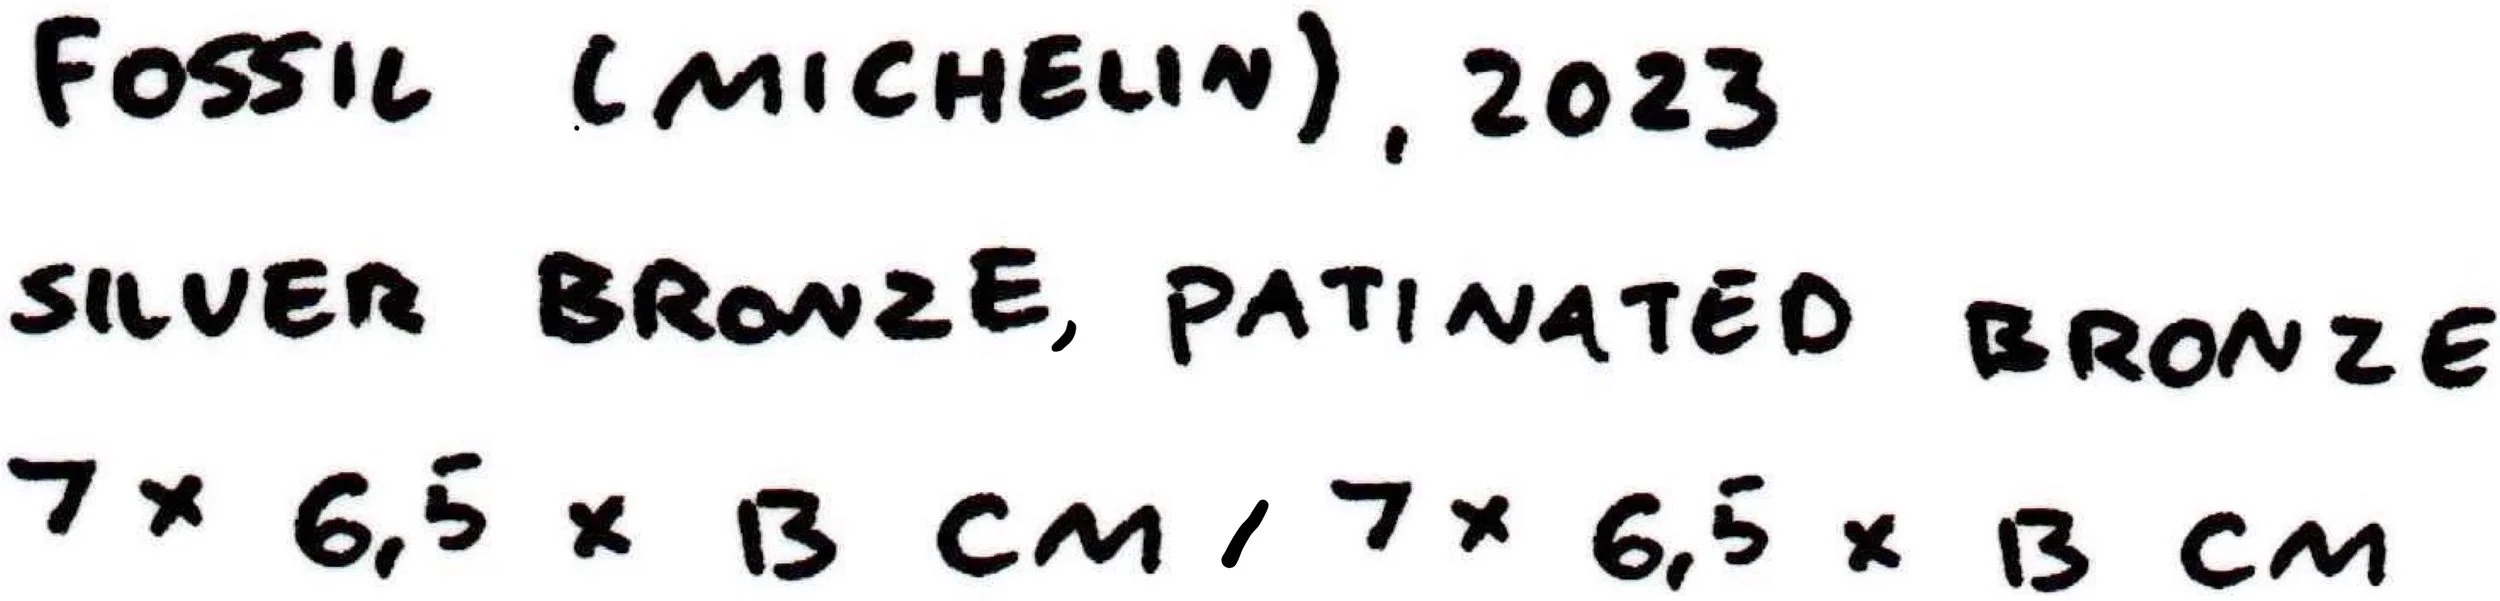 FOSSIL (MICHELIN), 2023
SILVER BRONZE, PATINATED BRONZE
7 x 6,5 x 13 CM / 7 x 6,5 x 13 CM